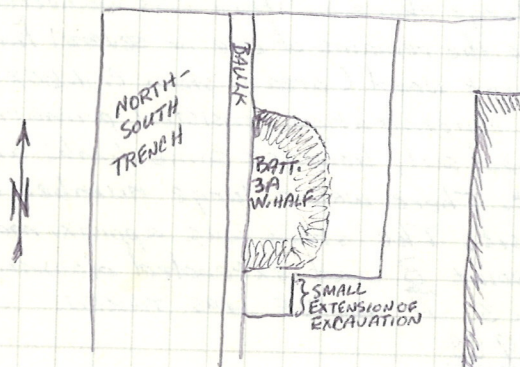 NORTH-
SOUTH
TRENCH
BAULK
BATT.
3A
W. HALF
N
SMALL
EXTENSION OF
EXCAVATION